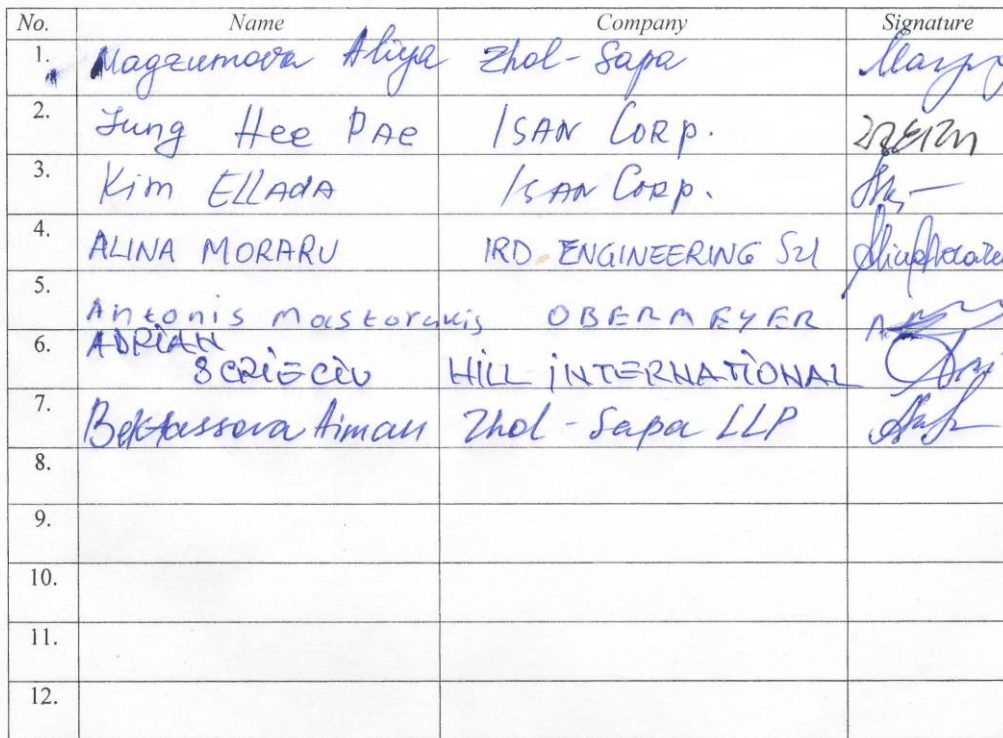 No. Name Company Signature
1. Magzumova Aliya Zhol-Sapa
2. Jung Hee PAe ISAN CORP.
3. Kim ELLADA ISAN CORP.
4. ALINA MORARU IRD ENGINEERING Srl
5. Antonis Mastorakis OBERMEYER
6. ADRIAN
SCRIECIU HILL INTERNATIONAL
7. Bektassova Aiman Zhol-Sapa LLP
8.
9.
10.
11.
12.